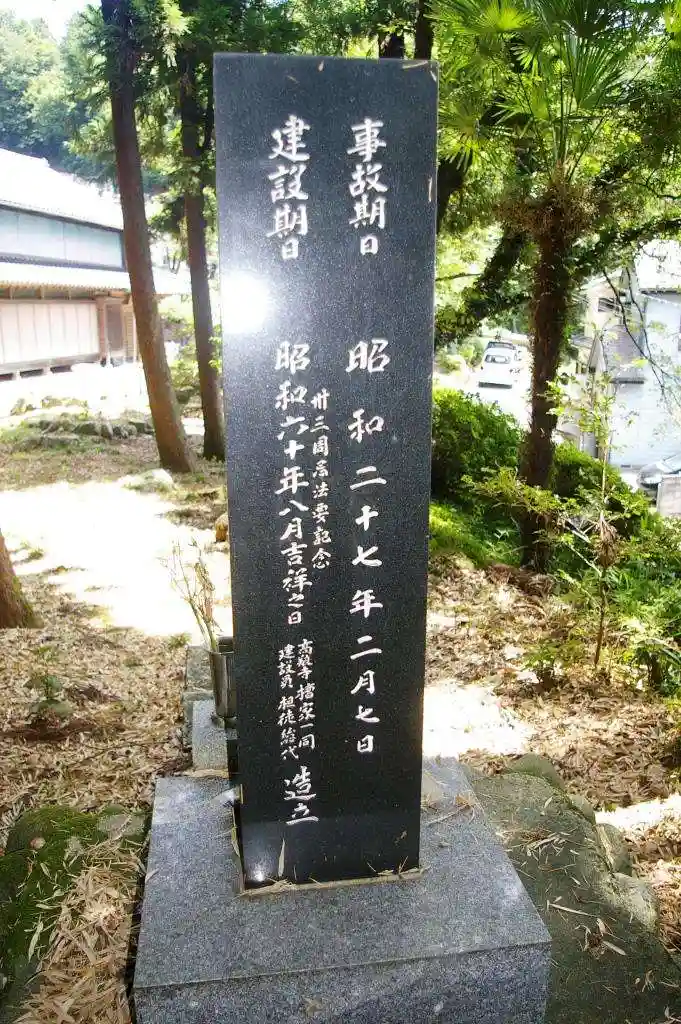 事故期日　昭和二十七年二月七日
建設期日　昭和六十年八月吉祥之日
卅三周忌法要記念
檀家一同
建設員
総代
造立